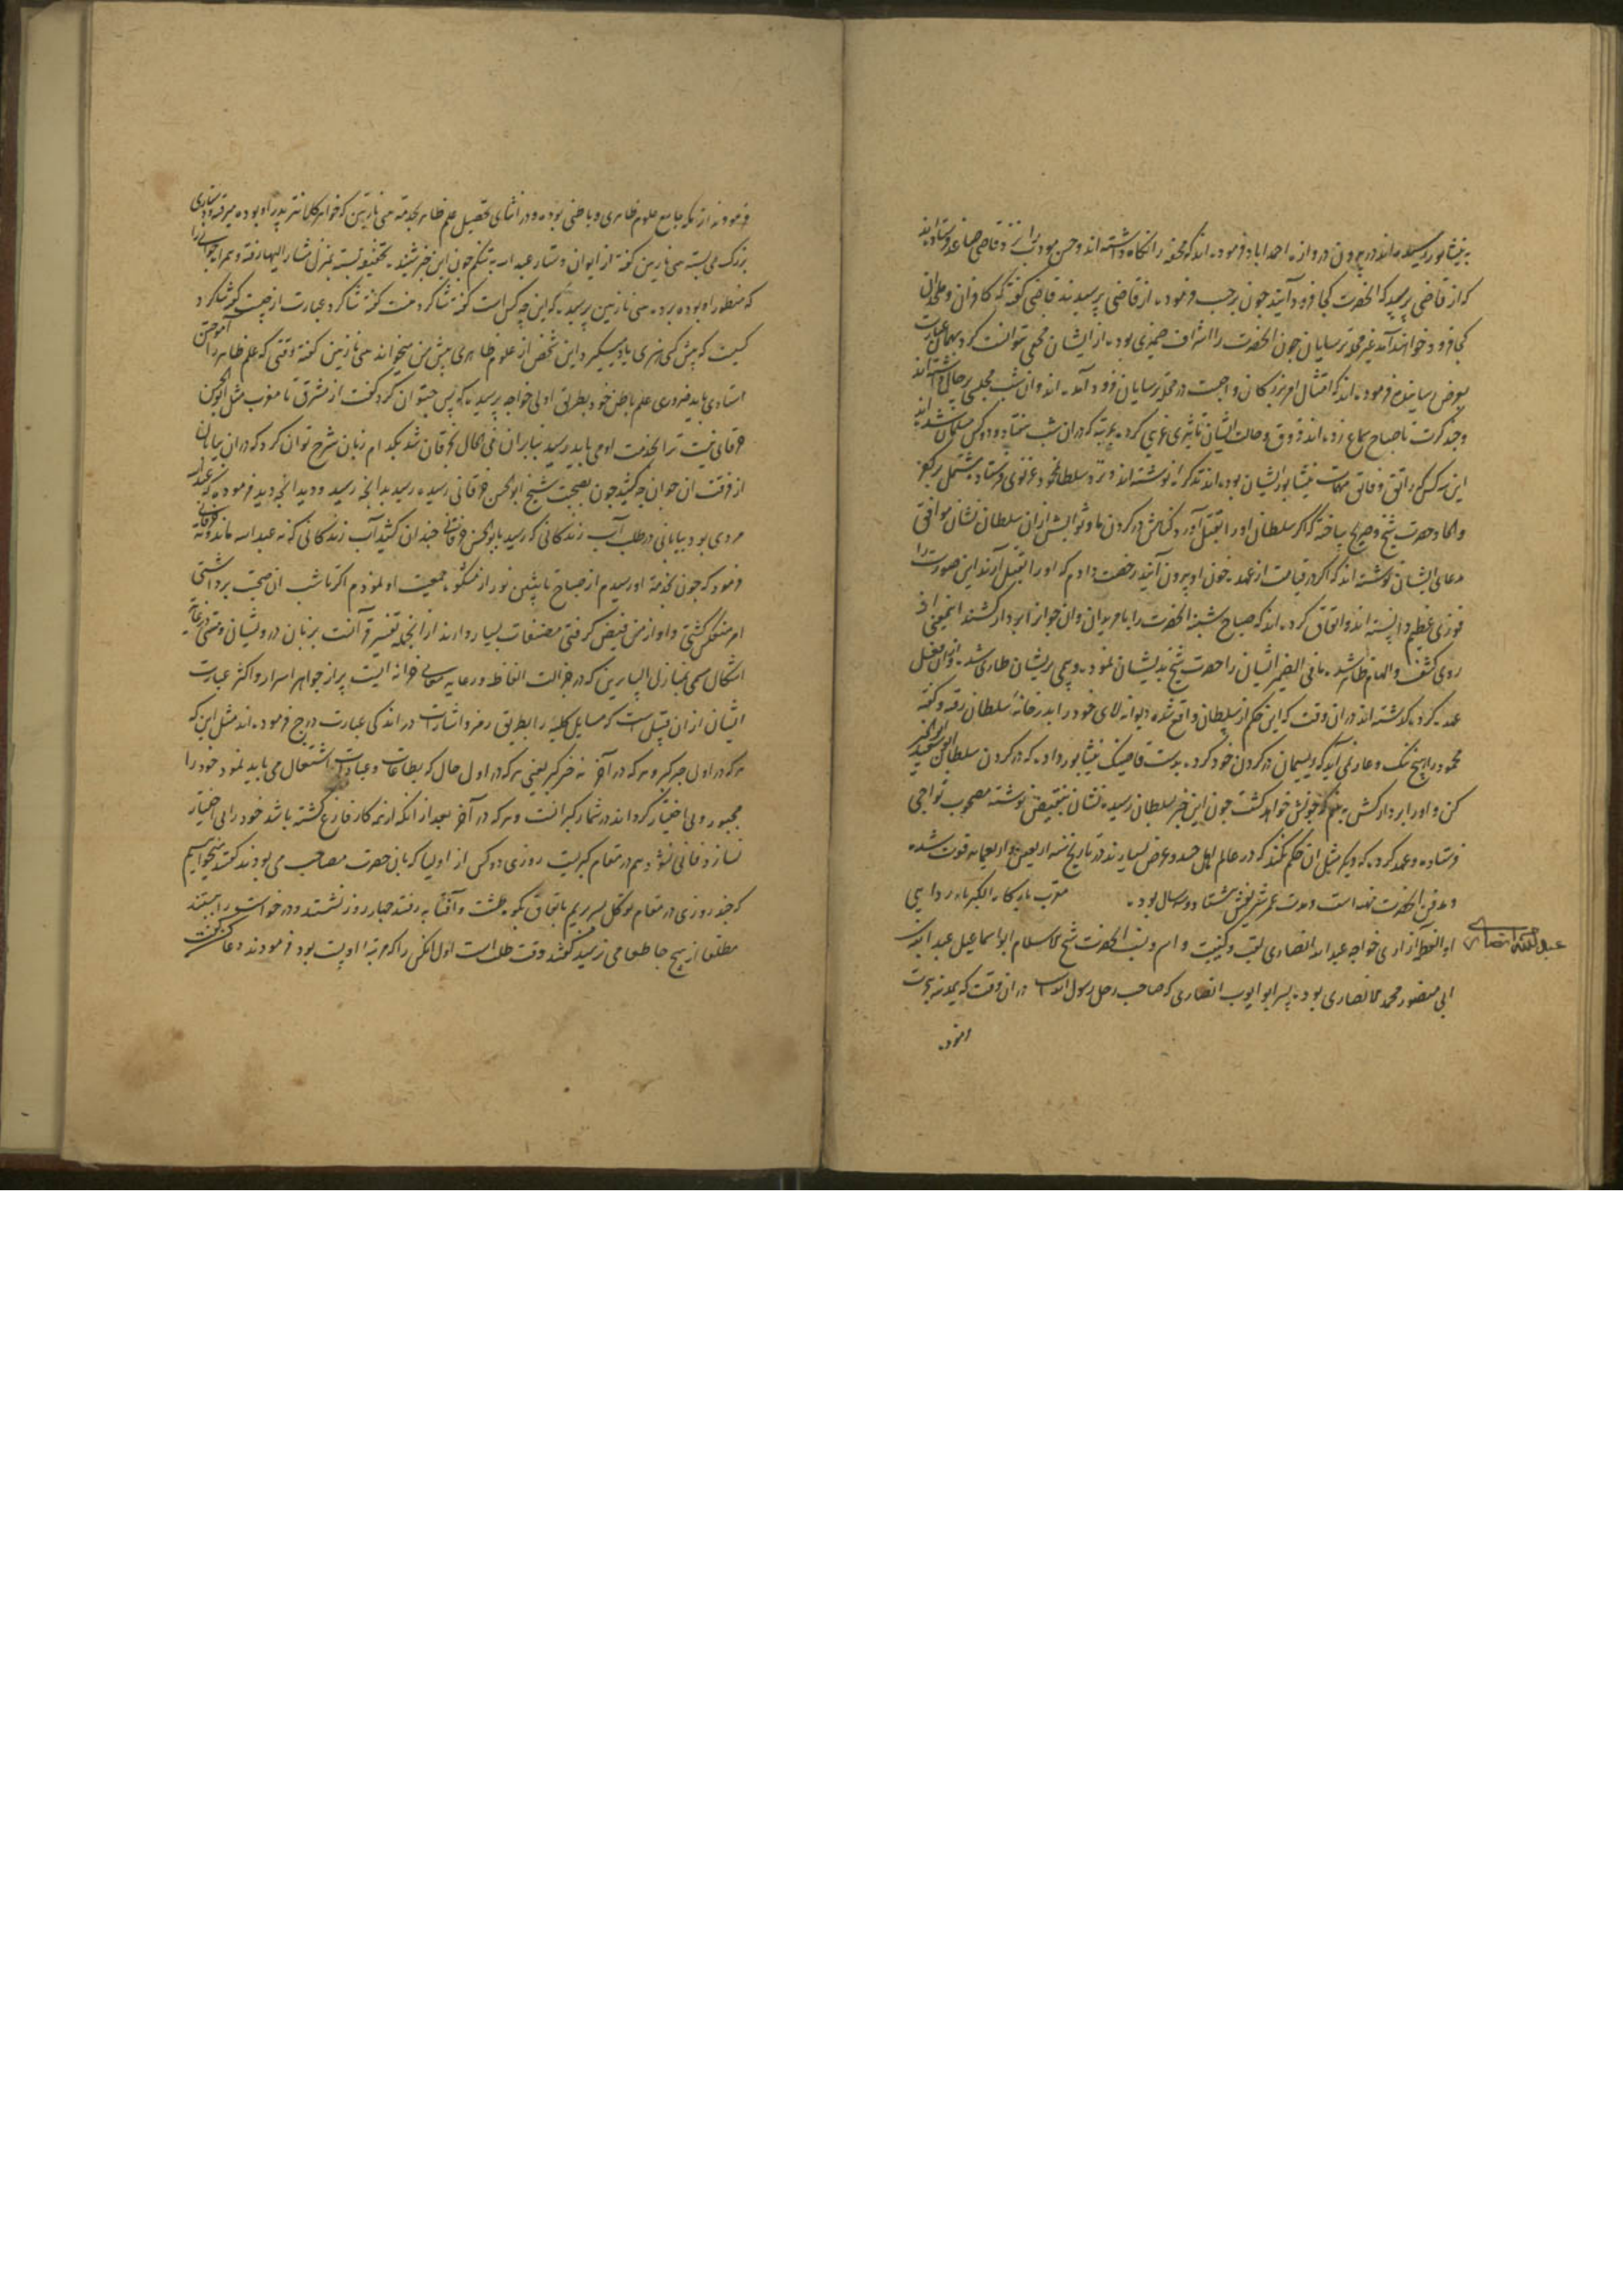 به نیشابور رسیده‌اند در بیرون دروازه احمداباد فرموده‌اند که محفه را نگاه داشته‌اند و حسن مودب را نزد قاضی صاعد فرستاده‌اند
که از قاضی پرسید که الحضرت کجا فرود آیند چون برحسب فرموده از قاضی پرسیدند قاضی گفته که کافران و ملحدان
کجا فرود خواهند آمد غیر محله ترسایان چون الحضرت را اشراف ضمیری بوده از ایشان مخفی نتوانست کرد همان عبارت
بعرض رسانیده فرموده‌اند که امتثال امر بزرگان واجبست در محله ترسایان فرود آمده‌اند و ان شب مجلسی
وجد کرت تا صباح سماع زده‌اند ذوق و حالت ایشان تاثیری غریبی کرده بمرتبه که در ان شب هفتاد و دو کس مسلمان شده‌اند
این سه کس که راتق و فاتق مهمات نیشابور ایشان بوده‌اند تذکره نوشته‌اند و نزد سلطان محمود غزنوی فرستاده مشتمل بر کفر
والحاد حضرت شیخ و صریح یافته که اگر سلطان او را بقتل آورد گناهش در گردن ما و ثوابش از ان سلطان نشان موافق
مدعای ایشان نوشته‌اند که اگر در قیامت از عهده خون او بیرون آیند رخصت دادم که او را بقتل آرند این صورت را
فوزی عظیم دانسته‌اند و اتفاق کرده‌اند که صباح شنبه الحضرت را با مریدان و ان جوانرا بر دار کشند اینمعنی از
روی کشف و الهام ظاهر شد ما فی الضمیر ایشان را حضرت شیخ بدیشان نمود وهمی بریشان طاری شد
عهد کرده گذشته‌اند در ان وقت که این حکم از سلطان واقع شده دیوانه لای خود را بدر خانه سلطان رفته و گفته
محمود را هیچ ننگ و عار نمی‌آید که ریسمان در گردن خود کرده بدست قاضیک نیشابور داده که در گردن سلطان ابوسعید ابوالخیر
کن و او را بر دار کش بخونش خواهد کشت چون این خبر بسلطان رسیده نشان بنقیض نوشته مصحوب تواجی
فرستاده و عهد کرده که دیگر مثل ان حکم نکند که در عالم اهل حسد و غرض بسیارند در تاریخ سنه اربعین و اربعمایه فوت شده
و مدفن الحضرت مهنه است و مدت عمر شریفش هشتاد و دو سال بوده مقرب بارگاه الکبریاء ردایی
عبد الله انصاری
او العظمة ازاری خواجه عبدالله انصاری لقب و کنیت و اسم و نسب الحضرت شیخ الاسلام ابو اسماعیل عبدالله بن
ابی منصور محمد الانصاری بوده پسر ابو ایوب انصاری که صاحب رحل رسول الله است در ان وقت که بمدینه هجرت
فرموده
فرموده‌اند انکه جامع علوم ظاهری و باطنی بوده و در اثنای تحصیل علم ظاهر بخدمت بی‌بی نازنین که خواهر کلانتر پدر او بوده میرفته
بزرگ می‌بسته بی‌بی نازنین گفته از ایوان دستار عبدالله به تنگم چون این خبر شنید تخفیفه بسته بمنزل مشار الیها رفته و همراه جوانی را
که منظور او بوده برده بی‌بی نازنین پرسیده که این چه کس است گفته شاگرد منست گفته شاگرد عبارت از چیست گفته شاگرد
کسیست که پیش کسی هنری یاد میگیرد این شخص از علوم ظاهری پیش من میخواند بی‌بی نازنین گفته وقتی که علم ظاهر را آموختن
استادی باید ضروری علم باطن خود بطریق اولی خواجه پرسیده که پس چه توان کرد گفت از مشرق تا مغرب مثل ابوالحسن
خرقانی نیست ترا بخدمت او می‌باید رسید بنابران فی الحال بخرقان شد بکدام زبان شرح توان کرد که در ان بیابان
از فرقت ان جوان چه کشید چون بصحبت شیخ ابوالحسن خرقانی رسیده رسید بدانچه رسید و دید انچه دید فرموده که عبدالله
مردی بود بیابانی در طلب آب زندگانی که رسید بابوالحسن خرقانی چندان کشید آب زندگانی که نه عبدالله ماند و نه خرقانی
فرمود که چون بخدمت او رسیدم از صباح تا پیشین نور از مشکوة جمعیت او نمودم اگر تا شب ان صحبت برداشتی
امر منعکس گشتی و او از من فیض گرفتی مصنفات بسیار دارند از انجمله تفسیر قرآنست بزبان درویشان و متنی در غایت
اشکال مسمی بمنازل السایرین که در جزالت الفاظ و رعایه معانی خزانه ایست پر از جواهر اسرار و اکثر عبارت
ایشان از ان قبیل است که مسایل کلیه را بطریق رمز و اشارت در اندکی عبارت درج فرموده‌اند مثل این که
هر که در اول جبر گبر و هر که در آخر نه جبر گبر یعنی هر که در اول حال که بطاعات و عبادات اشتغال می‌باید نمود خود را
مجبور و بی اختیار گرداند در شمار گبرانست و هر که در آخر بعد از انکه از همه کار فارغ گشته باشد خود را بی اختیار
نسازد و فانی نشود هم در مقام گبریت روزی دو کس از اولیا که بان حضرت مصاحب می‌بودند گفتند میخواهیم
که چند روزی در مقام توکل بسر بریم باتفاق بکوه طشت و آفتابه رفتند چهار روز نشستند و در خواست را بستند
مطلقا از هیچ جا طعامی نرسید گفتند وقت طلب است اول انکس را که مرتبه او پست بود فرمودند دعا کن گفت